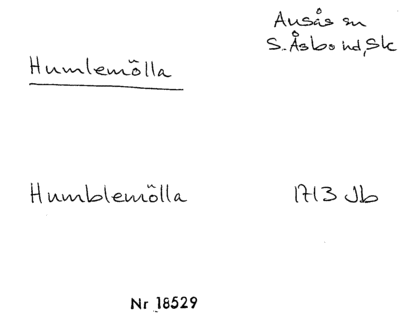 Ausås sn
S. Åsbo hd, Sk
Humlemölla
Humblemölla 1713 Jb
Nr 18529